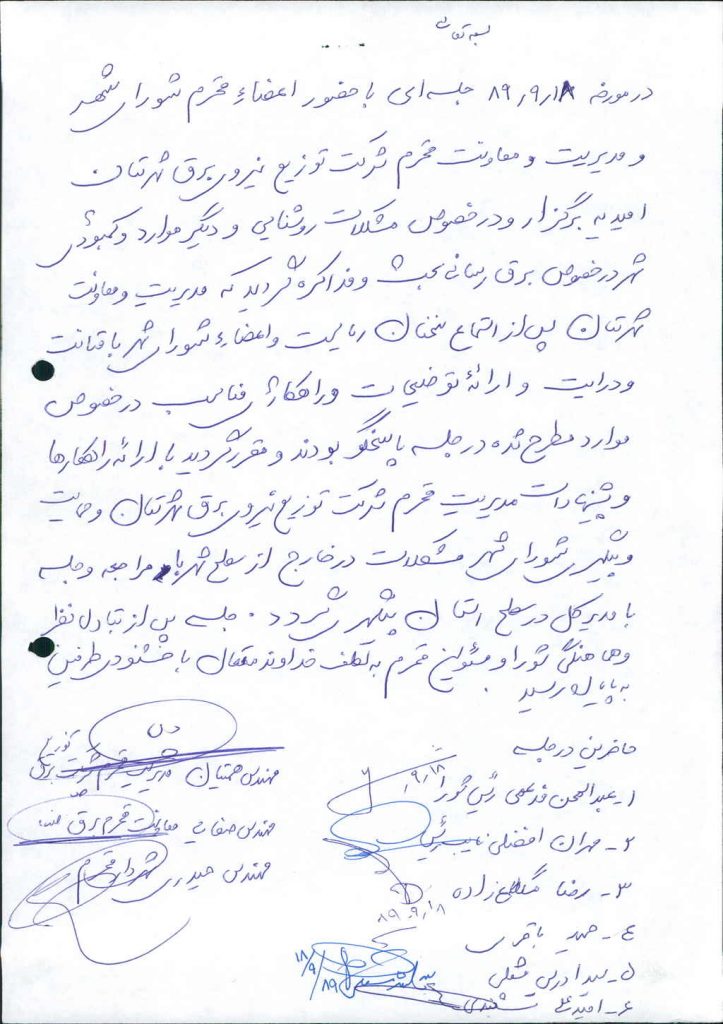 بسمه تعالی
در مورخه ۸۹٫۹٫۱۸ جلسه‌ای با حضور اعضاء محترم شورای شهر
و مدیریت و معاونت محترم شرکت توزیع نیروی برق شهرستان
امیدیه برگزار و در خصوص مشکلات روشنایی و دیگر موارد و کمبودهای
شهر در خصوص برق رسانی بحث و مذاکره گردید که مدیریت و معاونت
شهرستان پس از استماع سخنان ریاست و اعضاء شورای شهر با متانت
و درایت و ارائه توضیحات و راهکارهای مناسب در خصوص
موارد مطرح شده در جلسه پاسخگو بودند و مقرر گردید با ارائه راهکارها
و پیشنهادات مدیریت محترم شرکت توزیع نیروی برق شهرستان و حمایت
و پیگیری شورای شهر مشکلات در خارج از سطح شهر با مراجعه و جلسه
با مدیرکل در سطح استان پیگیری گردد. جلسه پس از تبادل نظر
و هماهنگی شورا و مسئولین محترم به لطف خداوند متعال با خشنودی طرفین
به پایان رسید.
حاضرین در جلسه
مهندس همتیان مدیریت محترم شرکت توزیع برق
۱- عبدالمحمن رئیس شورا ۹٫۱۸
مهندس صفایی معاونت محترم برق
۲- مهران افضلی نایب رئیس
مهندس حیدری شهردار محترم
۳- رضا زاده
۸۹٫۹٫۱۸
۴- حمید باقری
۵- سید ادریس
۱۸/۹/۸۹
۶- امید